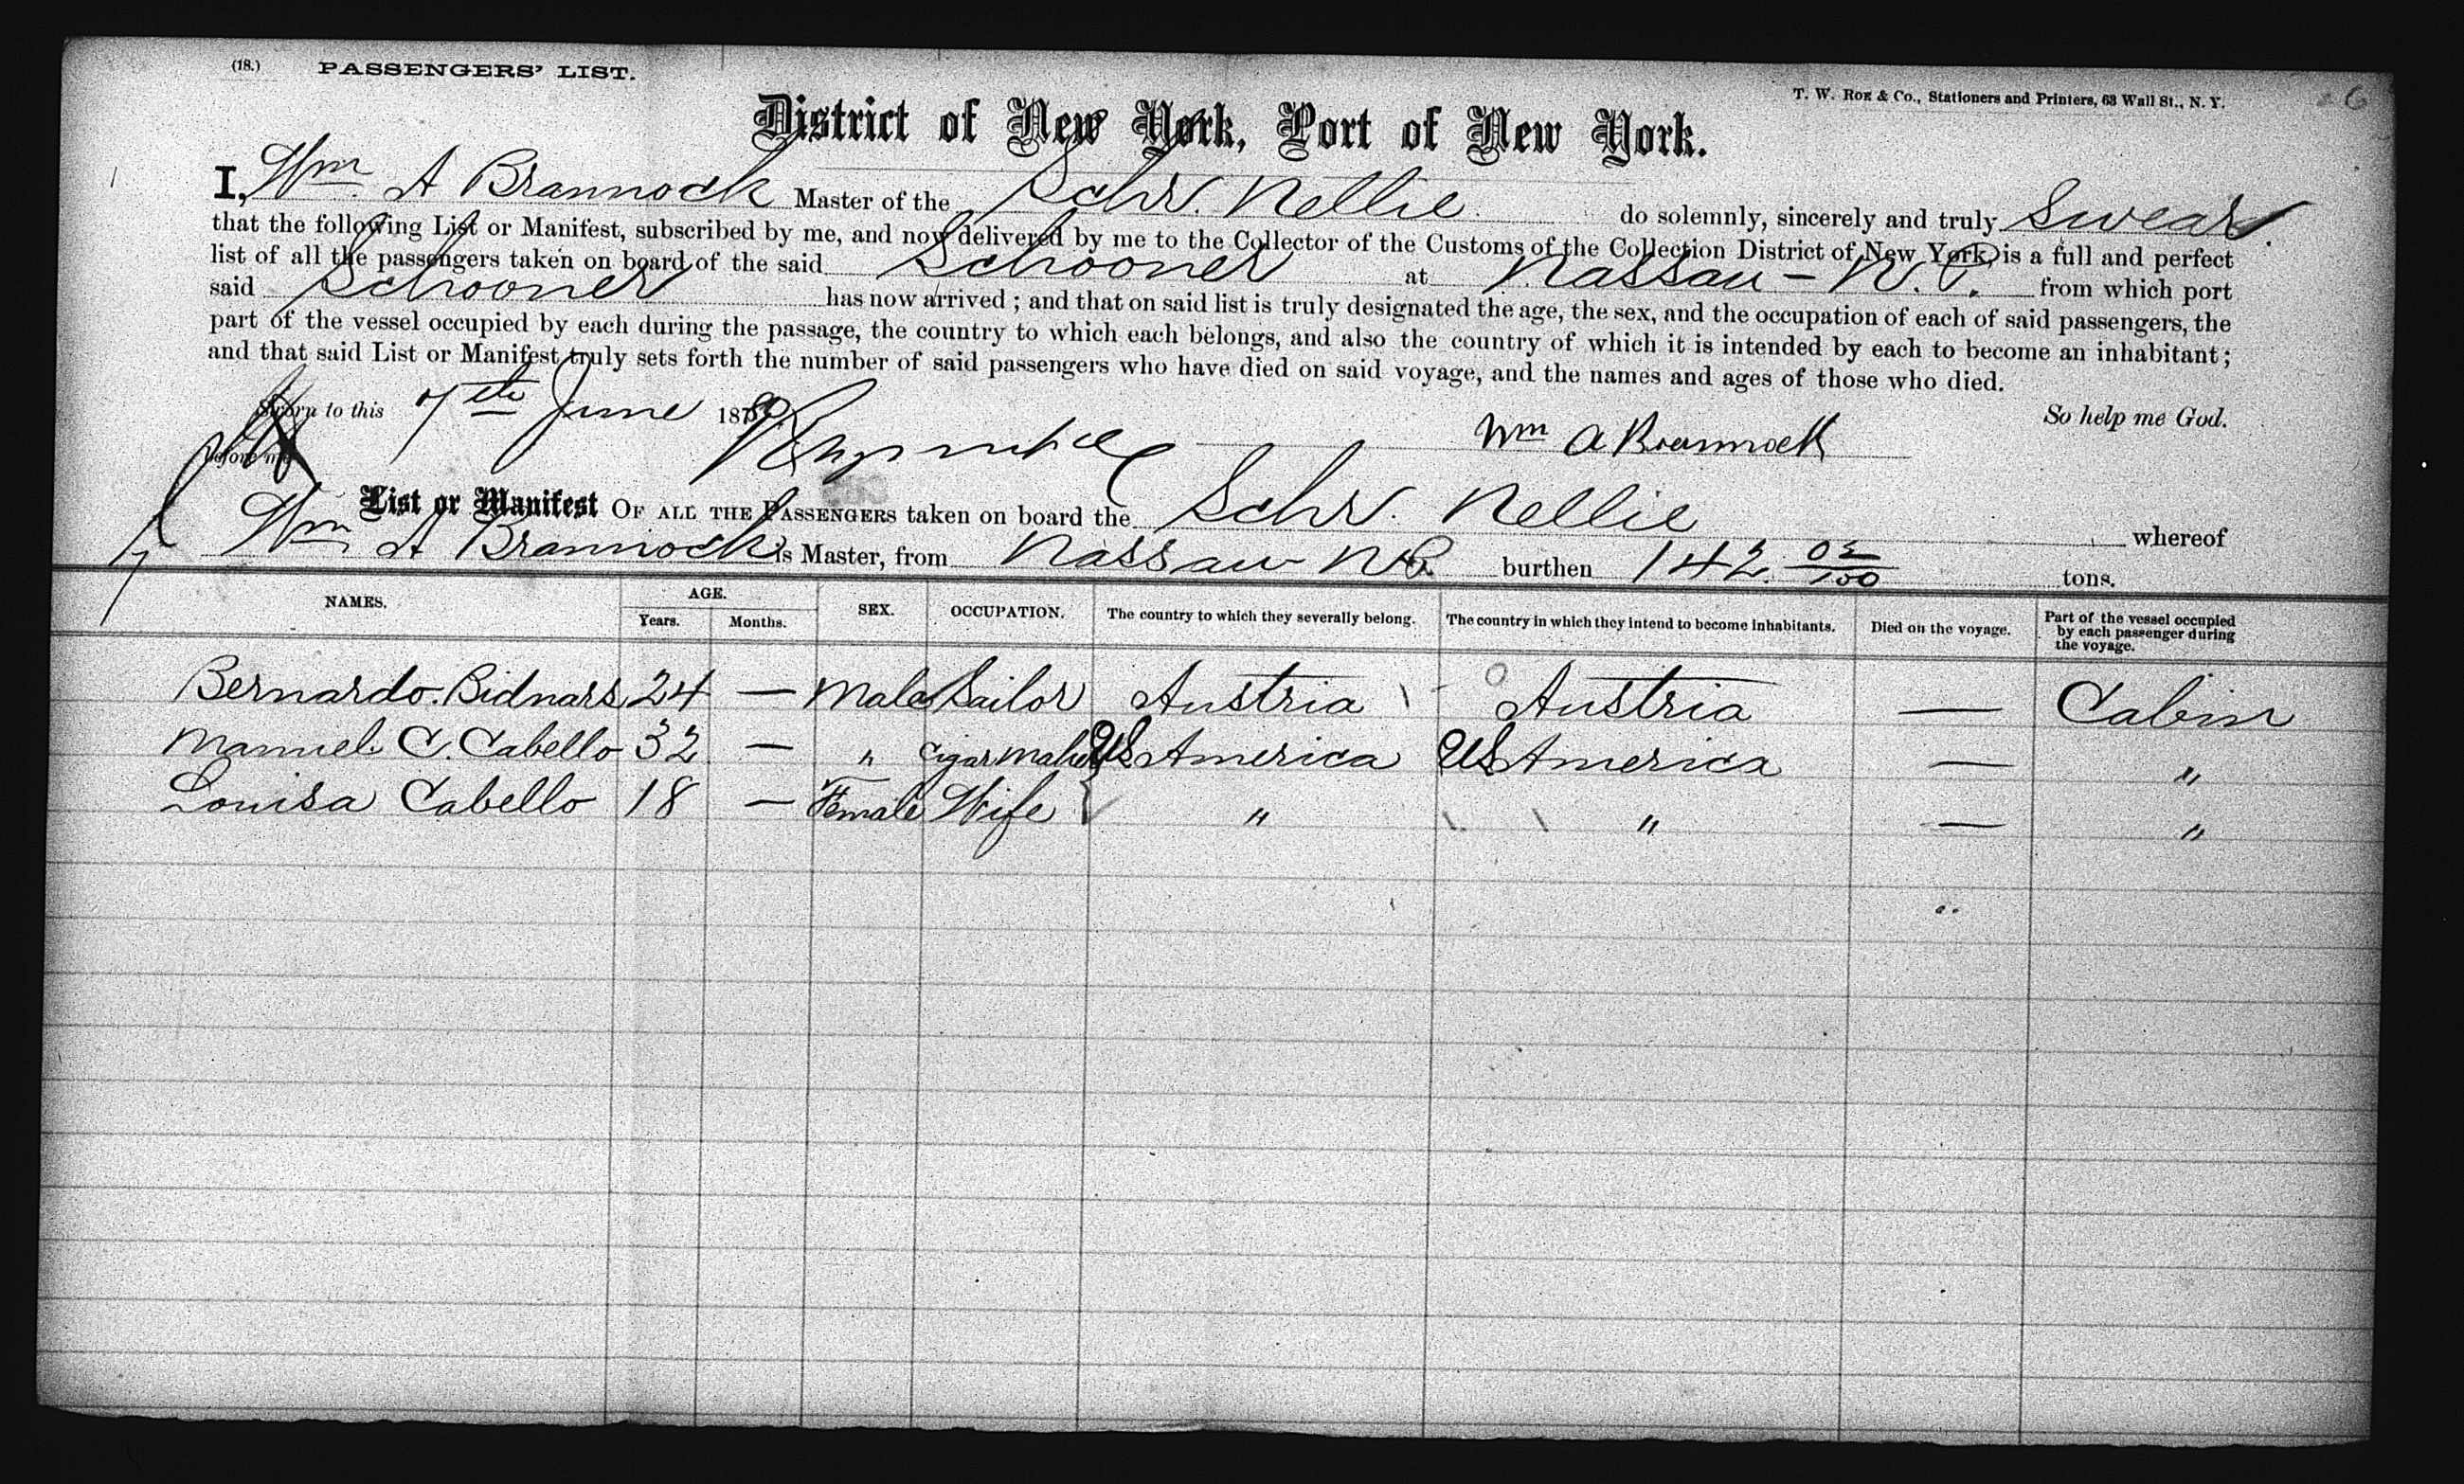 (18.) PASSENGERS' LIST.
T. W. Roe & Co., Stationers and Printers, 63 Wall St., N. Y. 6
District of New York, Port of New York.
I, Wm A Brannock Master of the Schr. Nellie do solemnly, sincerely and truly Swear
that the following List or Manifest, subscribed by me, and now delivered by me to the Collector of the Customs of the Collection District of New York, is a full and perfect
list of all the passengers taken on board of the said Schooner at Nassau - N. P. from which port
said Schooner has now arrived; and that on said list is truly designated the age, the sex, and the occupation of each of said passengers, the
part of the vessel occupied by each during the passage, the country to which each belongs, and also the country of which it is intended by each to become an inhabitant;
and that said List or Manifest truly sets forth the number of said passengers who have died on said voyage, and the names and ages of those who died.
Sworn to this 7th June 1880 So help me God.
before me Wm A Brannock
List or Manifest OF ALL THE PASSENGERS taken on board the Schr. Nellie whereof
Wm A Brannock is Master, from Nassau N.P. burthen 142 02/100 tons.
NAMES. AGE. Years. Months. SEX. OCCUPATION. The country to which they severally belong. The country in which they intend to become inhabitants. Died on the voyage. Part of the vessel occupied by each passenger during the voyage.
Bernardo Bidnars 24 — Male Sailor Austria Austria — Cabin
Manuel C. Cabello 32 — " Cigar Maker US America US America — "
Louisa Cabello 18 — Female Wife " " — "